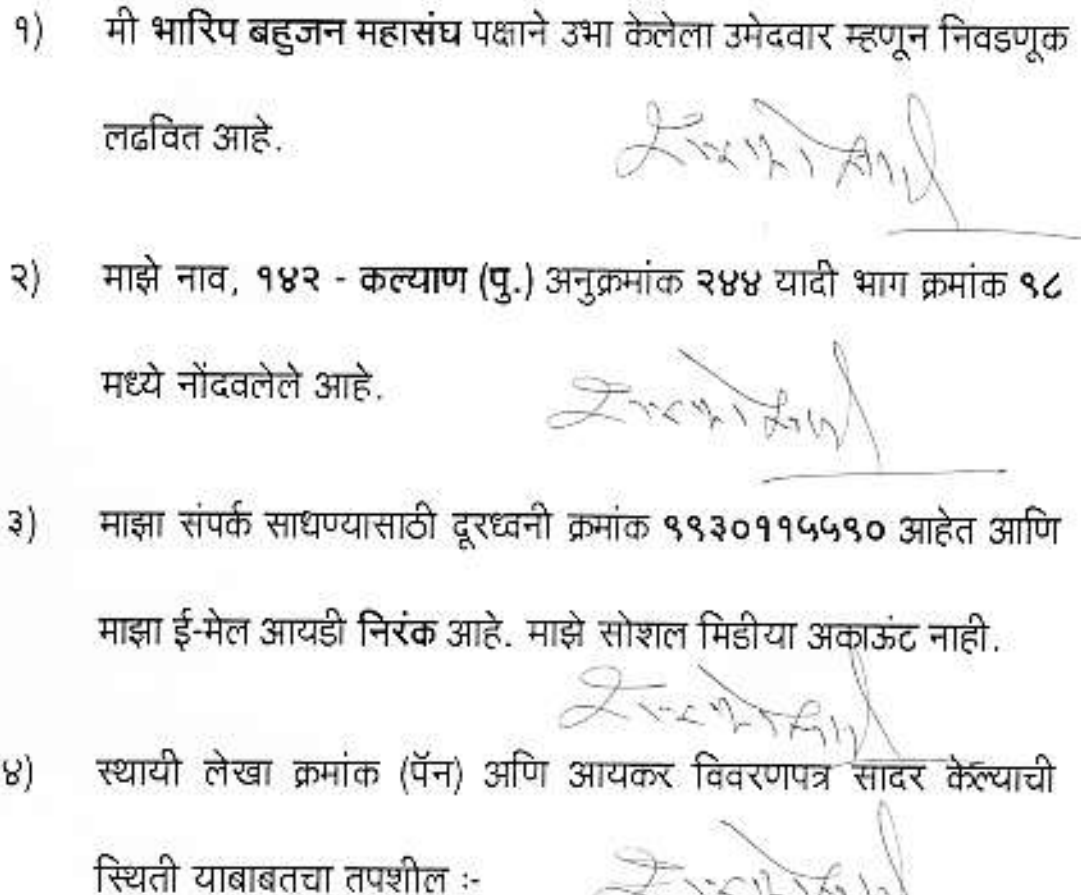 १) मी भारिप बहुजन महासंघ पक्षाने उभा केलेला उमेदवार म्हणून निवडणूक
लढवित आहे.
२) माझे नाव, १४२ - कल्याण (पु.) अनुक्रमांक २४४ यादी भाग क्रमांक ९८
मध्ये नोंदवलेले आहे.
३) माझा संपर्क साधण्यासाठी दूरध्वनी क्रमांक ९९३०११५५९० आहेत आणि
माझा ई-मेल आयडी निरंक आहे. माझे सोशल मिडीया अकाऊंट नाही.
४) स्थायी लेखा क्रमांक (पॅन) अणि आयकर विवरणपत्र सादर केल्याची
स्थिती याबाबतचा तपशील :-